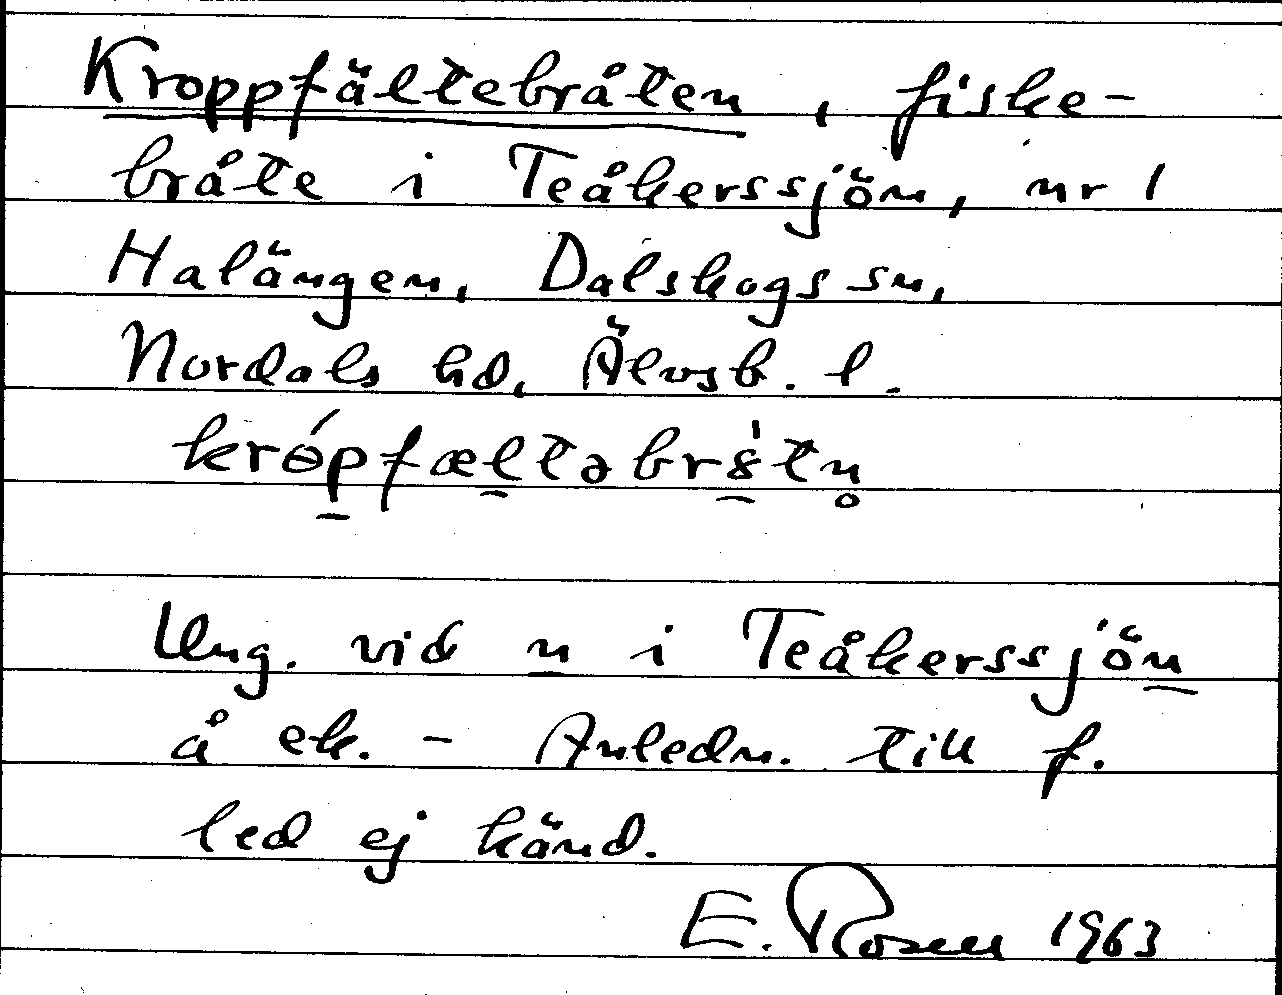 Kroppfältebråten, fiske-
bråte i Teåkerssjön, nr 1
Halängen, Dalskogs sn,
Nordals hd, Älvsb. l.
Ung. vid n i Teåkerssjön
å ek. - Anledn. till f.
led ej känd.
E. Rosell 1963